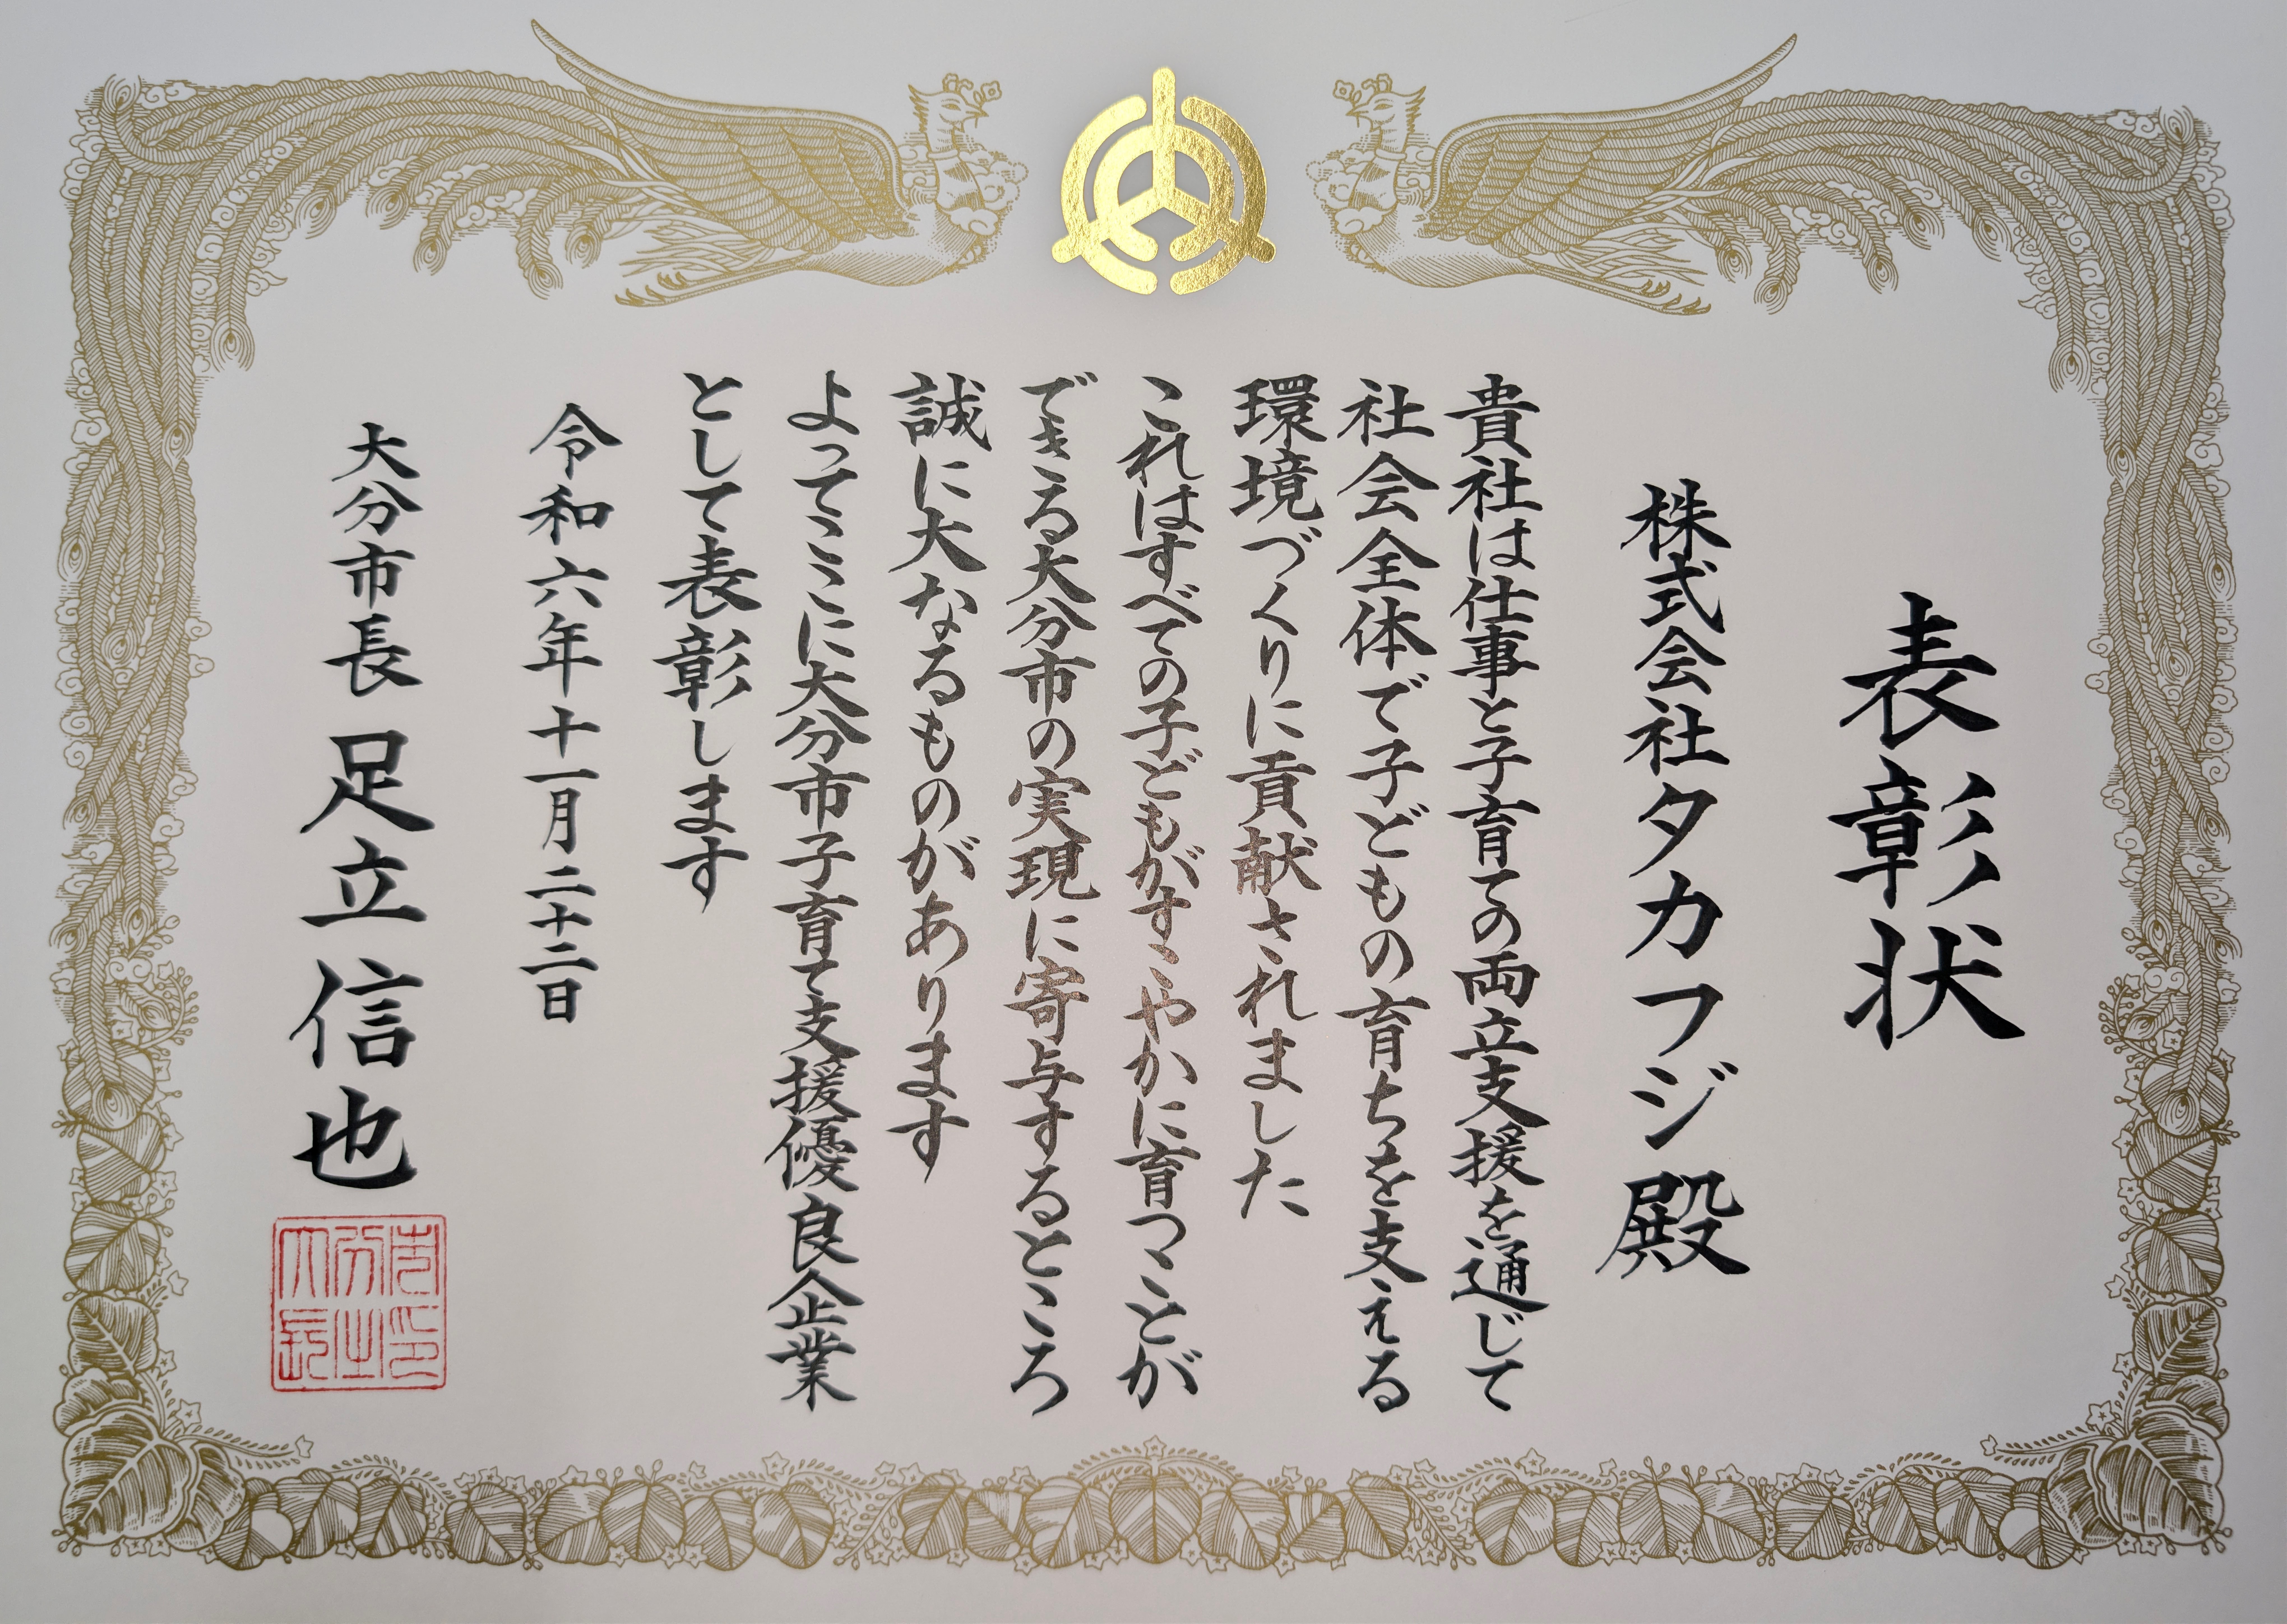 表彰状
株式会社タカフジ殿
貴社は仕事と子育ての両立支援を通じて
社会全体で子どもの育ちを支える
環境づくりに貢献されました
これはすべての子どもがすこやかに育つことが
できる大分市の実現に寄与するところ
誠に大なるものがあります
よってここに大分市子育て支援優良企業
として表彰します
令和六年十一月二十二日
大分市長 足立信也
大分市長之印